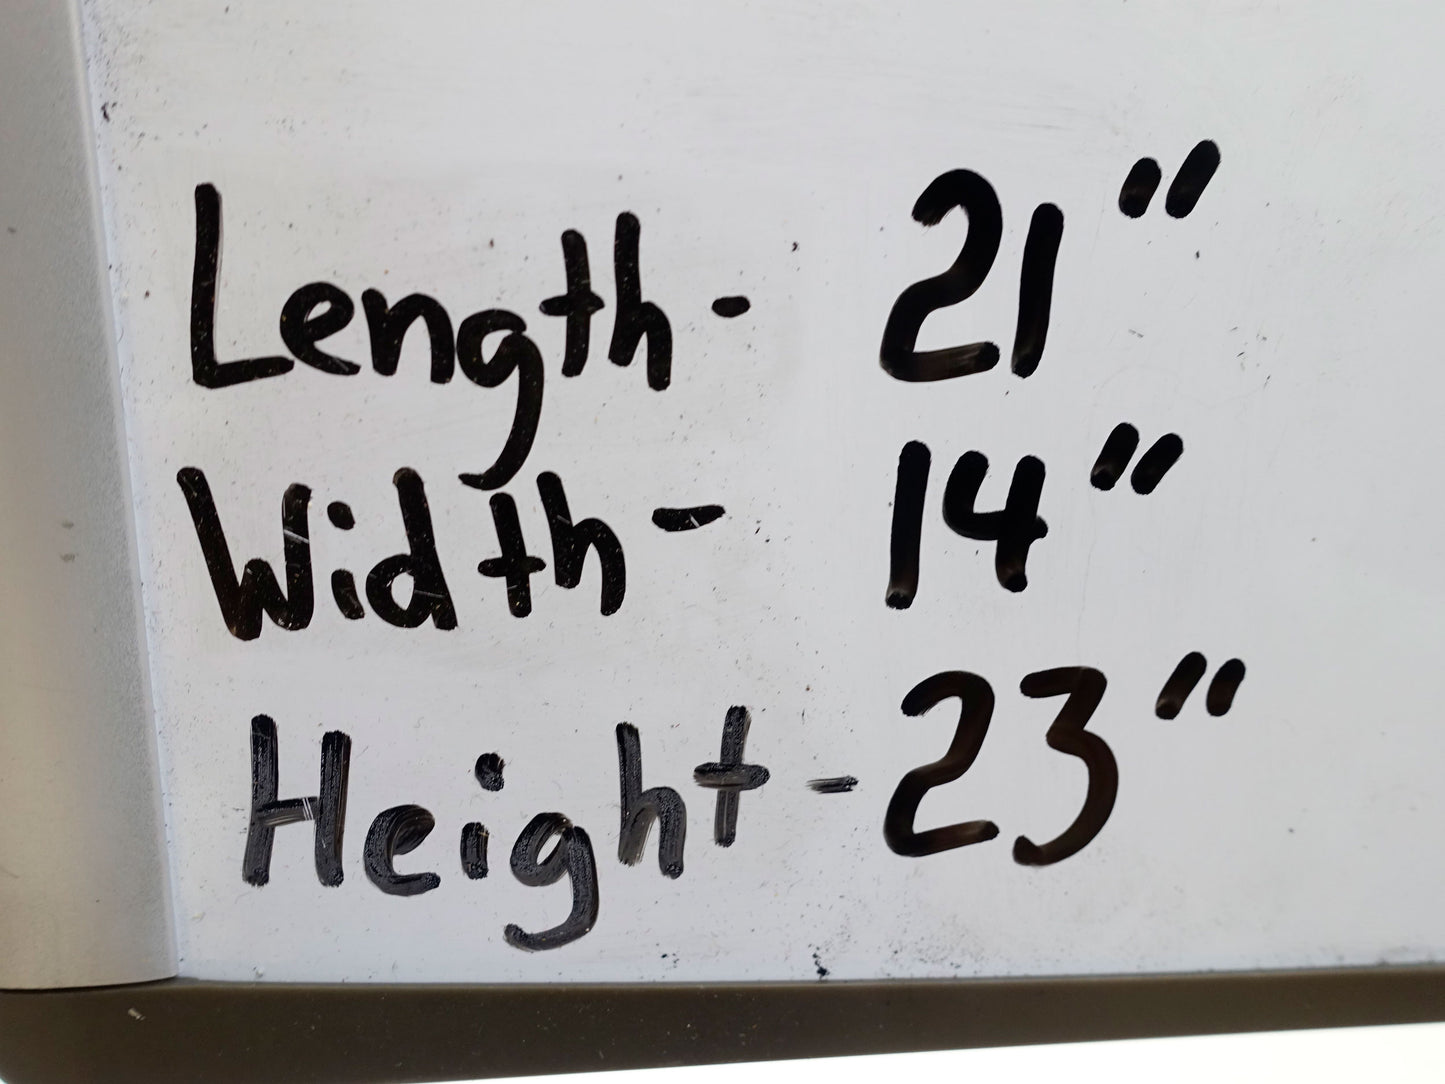 Length - 21"
Width - 14"
Height - 23"